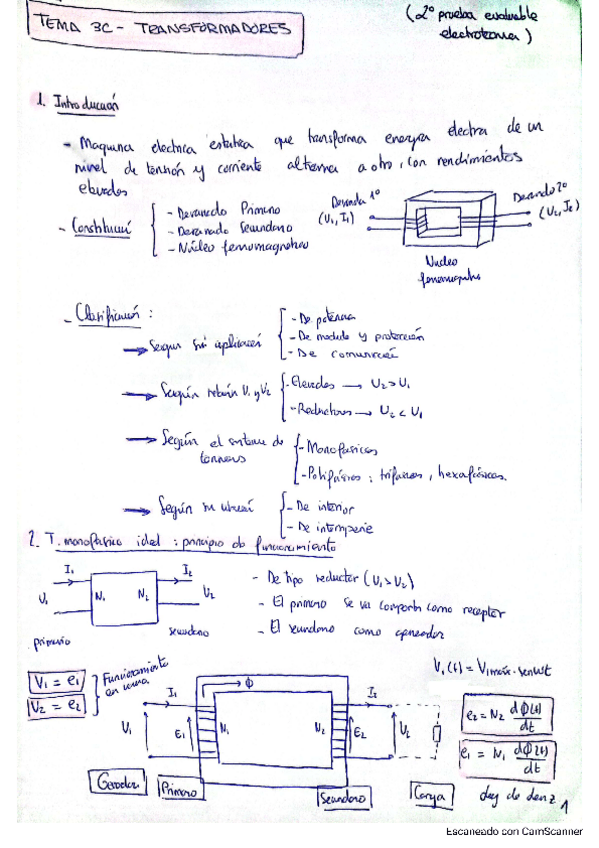 TEMA 3C - TRANSFORMADORES
(2º prueba evaluable
electrotecnia)
1. Introducción
- Maquina electrica estatica que transforma energia electrica de un
nivel de tensión y corriente alterna a otro, con rendimientos
elevados
- Constitución
- Devanado Primario
- Devanado Secundario
- Núcleo ferromagnetico
Devanado 1º
(U1, I1)
Devanado 2º
(U2, I2)
Nucleo
ferromagnetico
- Clasificación:
→ Segun su aplicación
- De potencia
- De medida y protección
- De comunicación
→ Según relación V1 y V2
- Elevadores → U2 > U1
- Reductores → U2 < U1
→ Según el sistema de
tensiones
- Monofasicos
- Polifásicos: trifasicos, hexafásicos.
→ Según su ubicación
- De interior
- De intemperie
2. T. monofasico ideal: principio de funcionamiento
I1
I2
U1
N1
N2
U2
primario
secundario
- De tipo reductor (U1 > U2)
- El primario se va comportar como receptor
- El secundario como generador
V1 = e1
V2 = e2
Funcionamiento
en
V1(t) = V1max · senwt
ϕ
I1
I2
V1
E1
N1
N2
E2
U2
e2 = N2 dϕ(t)/dt
e1 = N1 dϕ(t)/dt
Generador
Primario
Secundario
Carga
Ley de Lenz
1
Escaneado con CamScanner